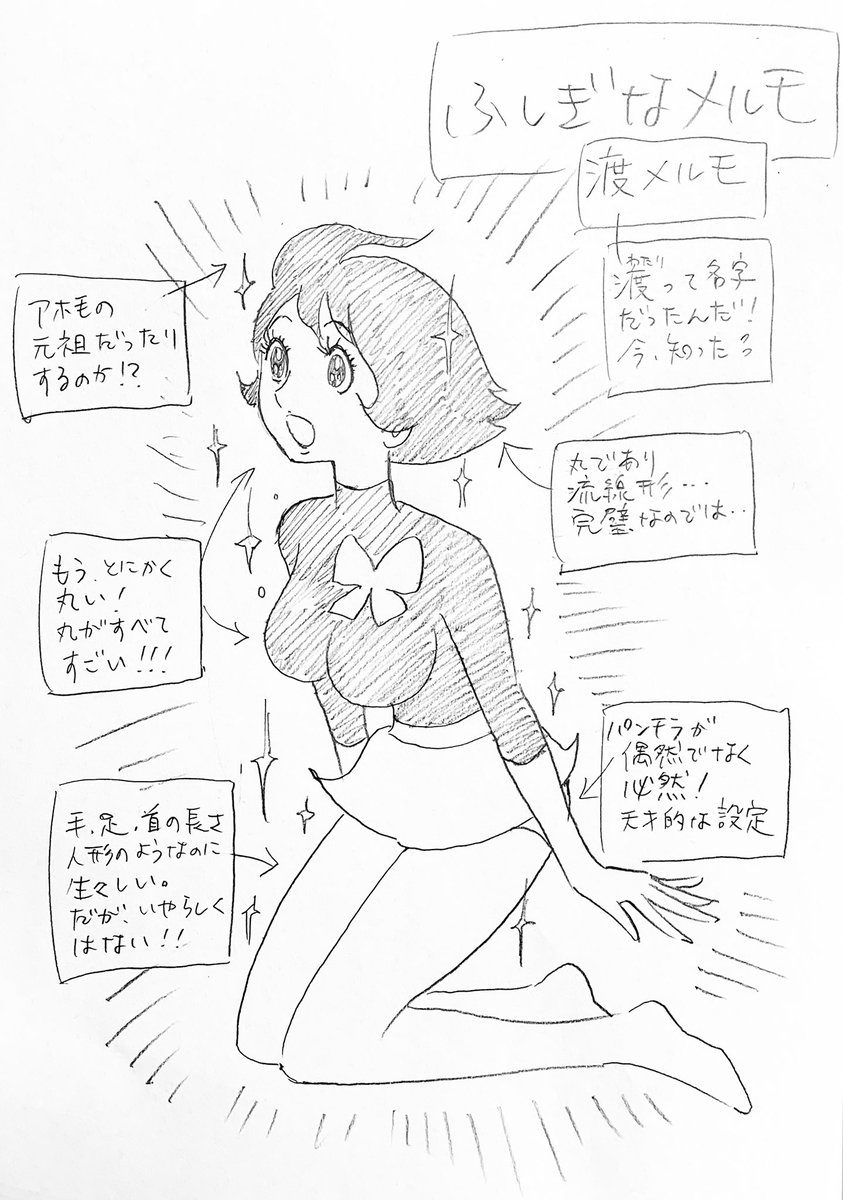 ふしぎなメルモ
渡メルモ
わたり
渡って名字
だったんだ!
今、知った
アホ毛の
元祖だったり
するのか!?
丸であり
流線形…
完璧なのでは…
もう、とにかく
丸い!
丸がすべて
すごい!!!
パンモラが
偶然でなく
必然!
天才的な設定
手、足、首の長さ
人形のようなのに
生々しい。
だが、いやらしく
はない!!